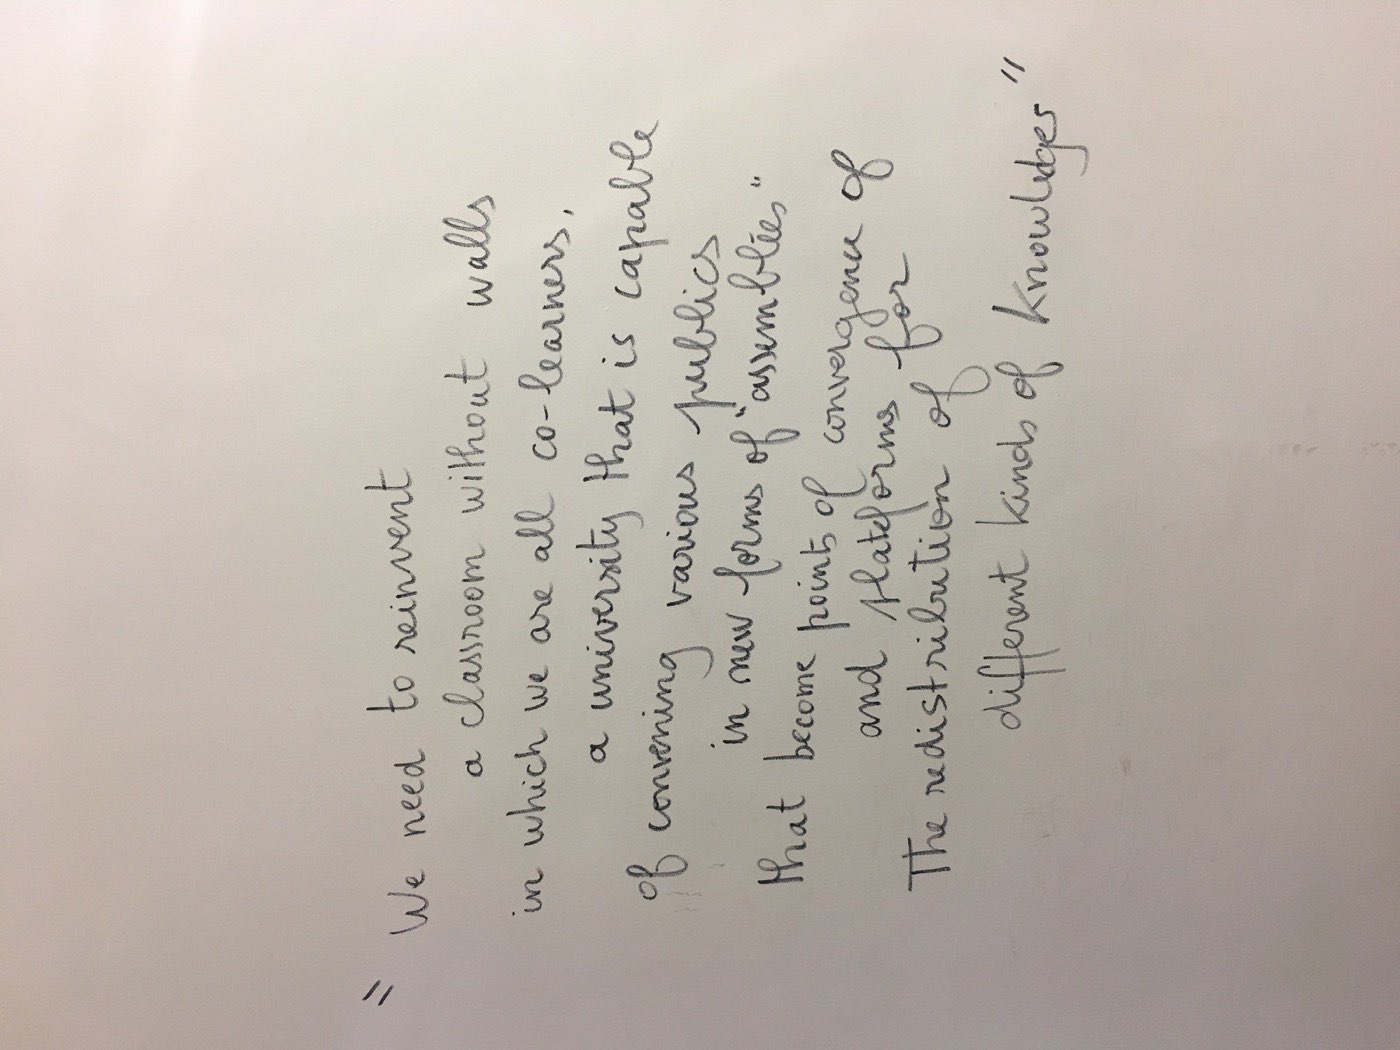 " We need to reinvent
a classroom without walls
in which we are all co-learners,
a university that is capable
of convening various publics
in new forms of "assemblies"
that become points of convergence of
and plateforms for
The redistribution of
different kinds of knowledges "